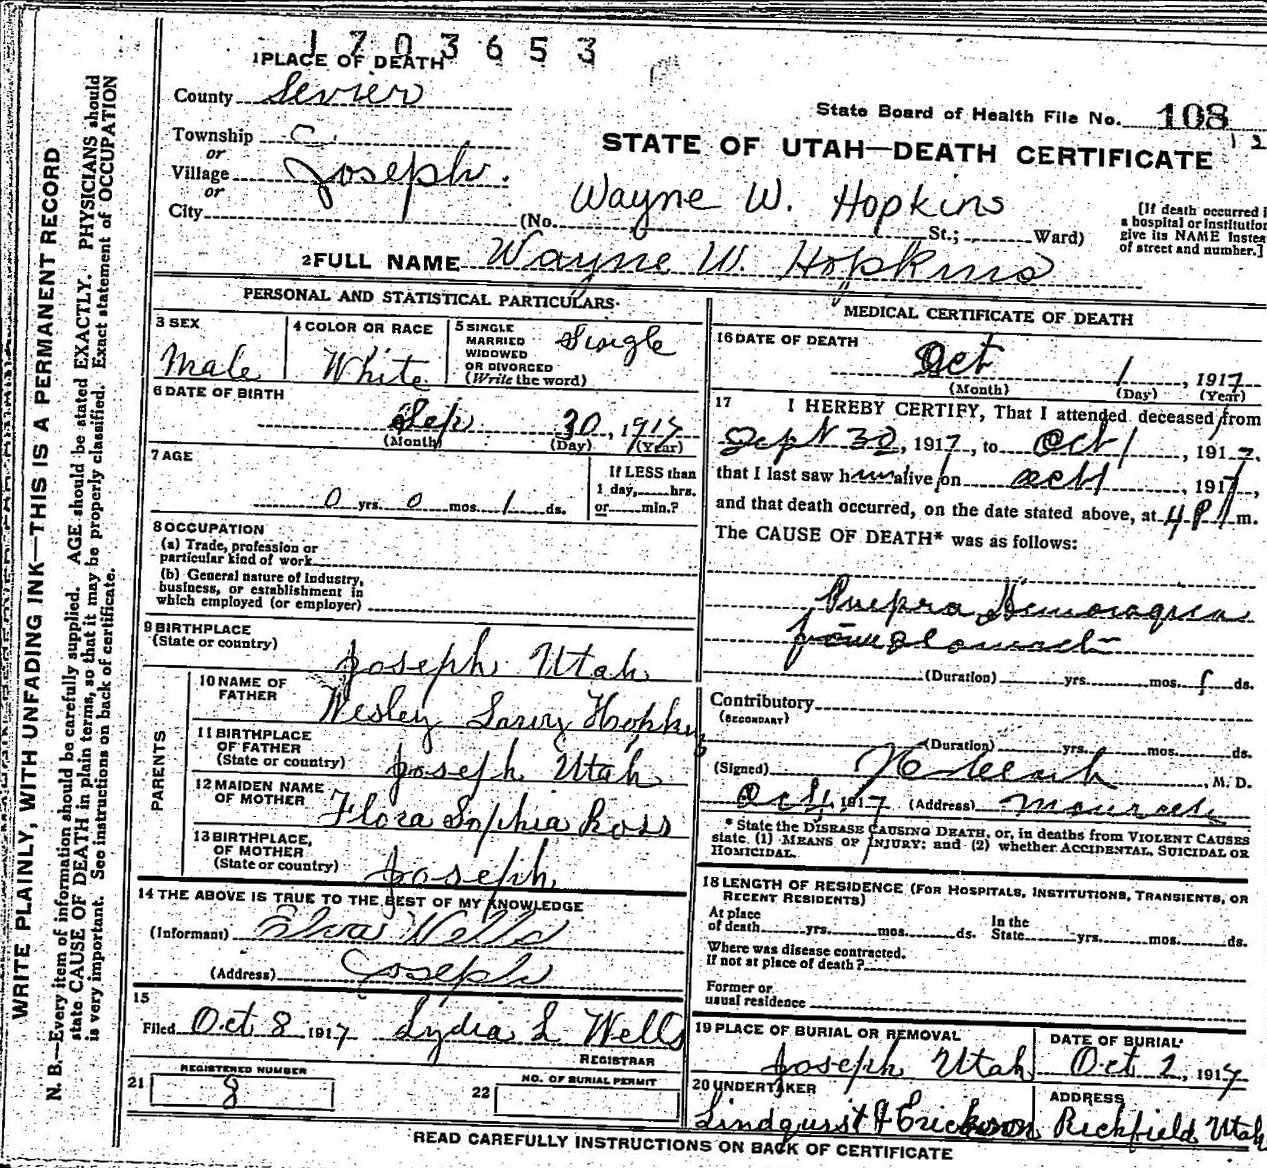 1703653
1 PLACE OF DEATH
County Sevier
State Board of Health File No. 108
Township
or
STATE OF UTAH—DEATH CERTIFICATE
Village Joseph.
or
Wayne W. Hopkins
City (No. St.; Ward)
[If death occurred i
a hospital or institution
give its NAME instea
of street and number.]
2 FULL NAME Wayne W. Hopkins
PERSONAL AND STATISTICAL PARTICULARS.
3 SEX
Male
4 COLOR OR RACE
White
5 SINGLE
MARRIED
WIDOWED
OR DIVORCED
(Write the word)
Single
6 DATE OF BIRTH
Sep 30, 1917
(Month) (Day) (Year)
7 AGE
0 yrs. 0 mos. 1 ds.
If LESS than
1 day, hrs.
or min.?
8 OCCUPATION
(a) Trade, profession or
particular kind of work
(b) General nature of Industry,
business, or establishment in
which employed (or employer)
9 BIRTHPLACE
(State or country)
Joseph Utah
PARENTS
10 NAME OF
FATHER
Wesley Hopkins
11 BIRTHPLACE
OF FATHER
(State or country)
Joseph Utah
12 MAIDEN NAME
OF MOTHER
Flora Sophia Ross
13 BIRTHPLACE,
OF MOTHER
(State or country)
Joseph,
14 THE ABOVE IS TRUE TO THE BEST OF MY KNOWLEDGE
(Informant) Elva Wells
(Address) Joseph
15
Filed Oct 8 1917 Lydia L Wells
REGISTRAR
21 REGISTERED NUMBER
8
22 NO. OF BURIAL PERMIT
MEDICAL CERTIFICATE OF DEATH
16 DATE OF DEATH
Oct 1, 1917
(Month) (Day) (Year)
17 I HEREBY CERTIFY, That I attended deceased from
Sept 30, 1917, to Oct 1, 1917.
that I last saw him alive on Oct 1, 1917,
and that death occurred, on the date stated above, at 4 P m.
The CAUSE OF DEATH* was as follows:
from
(Duration) yrs. mos. 1 ds.
Contributory
(SECONDARY)
(Duration) yrs. mos. ds.
(Signed) , M. D.
Oct 1, 1917 (Address)
* State the DISEASE CAUSING DEATH, or, in deaths from VIOLENT CAUSES
state (1) MEANS OF INJURY; and (2) whether ACCIDENTAL, SUICIDAL OR
HOMICIDAL.
18 LENGTH OF RESIDENCE (FOR HOSPITALS, INSTITUTIONS, TRANSIENTS, OR
RECENT RESIDENTS)
At place
of death yrs. mos. ds.
In the
State yrs. mos. ds.
Where was disease contracted.
If not at place of death?
Former or
usual residence
19 PLACE OF BURIAL OR REMOVAL
Joseph Utah
DATE OF BURIAL
Oct 2, 1917
20 UNDERTAKER
Lindquist & Erickson
ADDRESS
Richfield Utah
READ CAREFULLY INSTRUCTIONS ON BACK OF CERTIFICATE
WRITE PLAINLY, WITH UNFADING INK—THIS IS A PERMANENT RECORD
N. B.—Every item of information should be carefully supplied. AGE should be stated EXACTLY. PHYSICIANS should
state CAUSE OF DEATH in plain terms, so that it may be properly classified. Exact statement of OCCUPATION
is very important. See instructions on back of certificate.